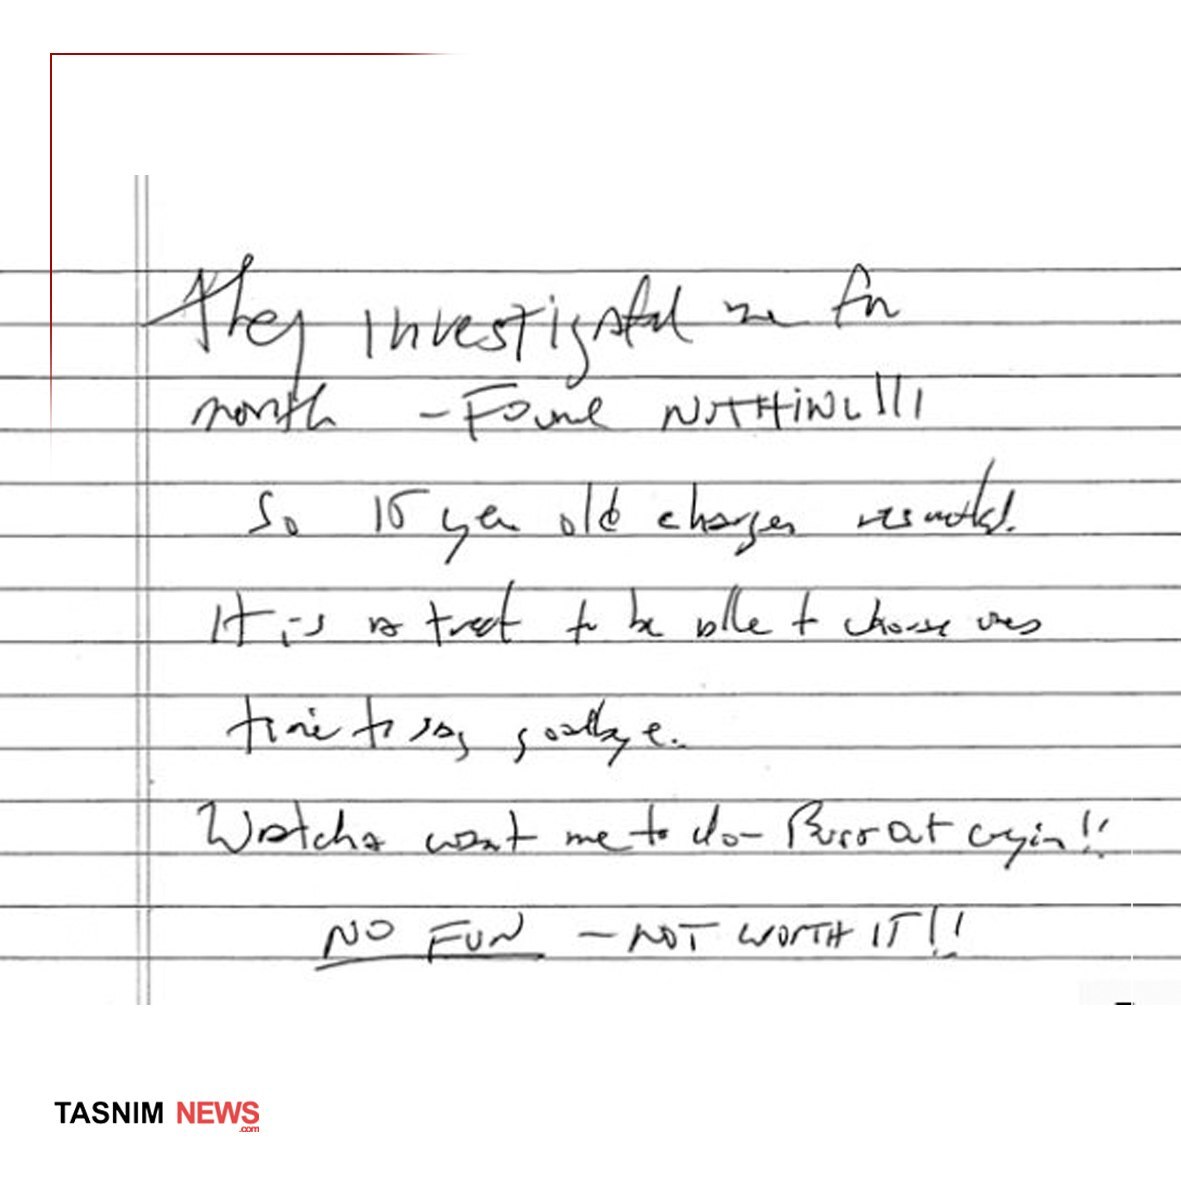 They investigated me for
month - Found NOTHING!!!
So 15 year old charges resulted.
It is a treat to be able to choose ones
time to say goodbye.
Watcha want me to do - Burst out cryin!!
NO FUN - NOT WORTH IT!!
TASNIM NEWS
.com